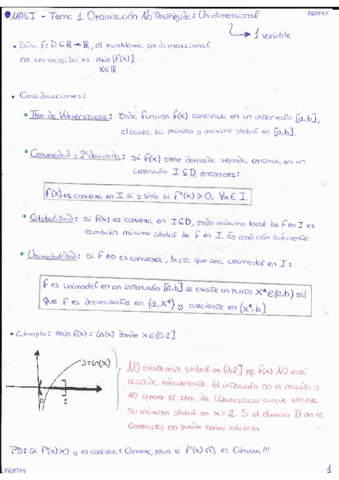 MASI - Tema 1. Optimización No Restringida: Unidimensional
1 variable
• Dada F: D⊆ℝ→ℝ, el problema unidimensional
no restringido es min(f(x))
x∈ℝ
• Consideraciones:
• Tma de Weierstrass: Toda función f(x) continua en un intervalo [a,b],
alcanza su mínimo y máximo global en [a,b].
• Convexidad y 2ª derivada: Si f(x) tiene derivada segunda continua en un
intervalo I⊆D, entonces:
f(x) es convexa en I si y sólo si f''(x) ≥ 0, ∀x∈I
• Globalidad: Si f(x) es convexa en I⊆D, todo mínimo local de f en I es
también mínimo global de f en I. Es condición suficiente.
• Unimodalidad: Si f no es convexa, basta que sea unimodal en I:
f es unimodal en un intervalo [a,b] si existe un punto x*∈(a,b) tal
que f es decreciente en (a,x*) y creciente en (x*,b)
• Ejemplo: min f(x) = ln(x) donde x∈(0,2]
y=ln(x)
NO existe mín global en (0,2] pq f(x) NO está
acotada inferiormente. El intervalo no es cerrado y
NO cumple el Tma de Weierstrass aunque alcanza
su máximo global en x=2. Si el dominio D no es
compacto no puede tener solución.
PD: Si f''(x)>0 y es continua: Convexa, pero si f''(x)<0, es Cóncava!!!
1